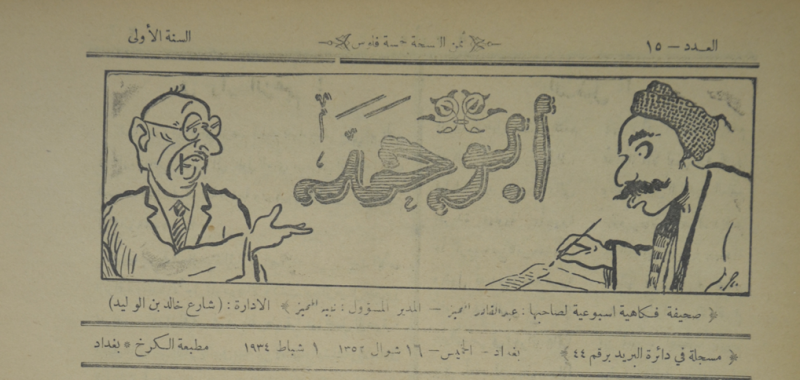 العدد — ١٥
ثمن النسخة خمسة فلوس
السنة الأولى
أبو حمد
صحيفة فكاهية اسبوعية لصاحبها : عبدالقادر المميز — المدير المسؤول : نجيه المميز الادارة : (شارع خالد بن الوليد)
مسجلة في دائرة البريد برقم ٤٤ بغداد — الخميس — ١٦ شوال ١٣٥٢ ١ شباط ١٩٣٤ مطبعة الكرخ * بغداد